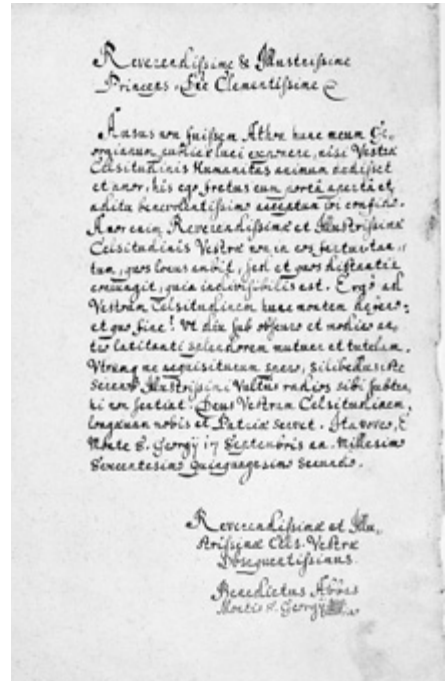 Reverendissime & Illustrissime
Princeps Dne Clementissime
Ausus non fuissem Athon hunc meum Ge-
orgianum publicæ luci exponere, nisi Vestræ
Celsitudinis Humanitas animum dedisset
et amor, his ego fretus cum portâ apertâ et
aditu benevolentissimo acceptum iri confido.
Amor enim Reverendissimæ et Illustrissimæ
Celsitudinis Vestræ non in eos fertur tan-
tum, quos locus ambit, sed et quos distantia
coniungit, quia indivisibilis est. Ergo ad
Vestram Celsitudinem hunc montem
et quo fine? Ut diu sub obscuro et modico an-
tro latitanti splendorem mutuer et tutelam.
Utrumque me acquisiturum spero, si
Serenos Illustrissimi Vultus radios sibi
non sentiat. Deus Vestram Celsitudinem
nobis et Patriæ servet. Ita voveo, E
Monte S. Georgij 17 Septembris an. Millesimo
Sexcentesimo Quinquagesimo Secundo.
Reverendissimæ et Illu-
strissimæ Cels. Vestræ
Obsequentissimus
Benedictus Abbas
Montis S. Georgij